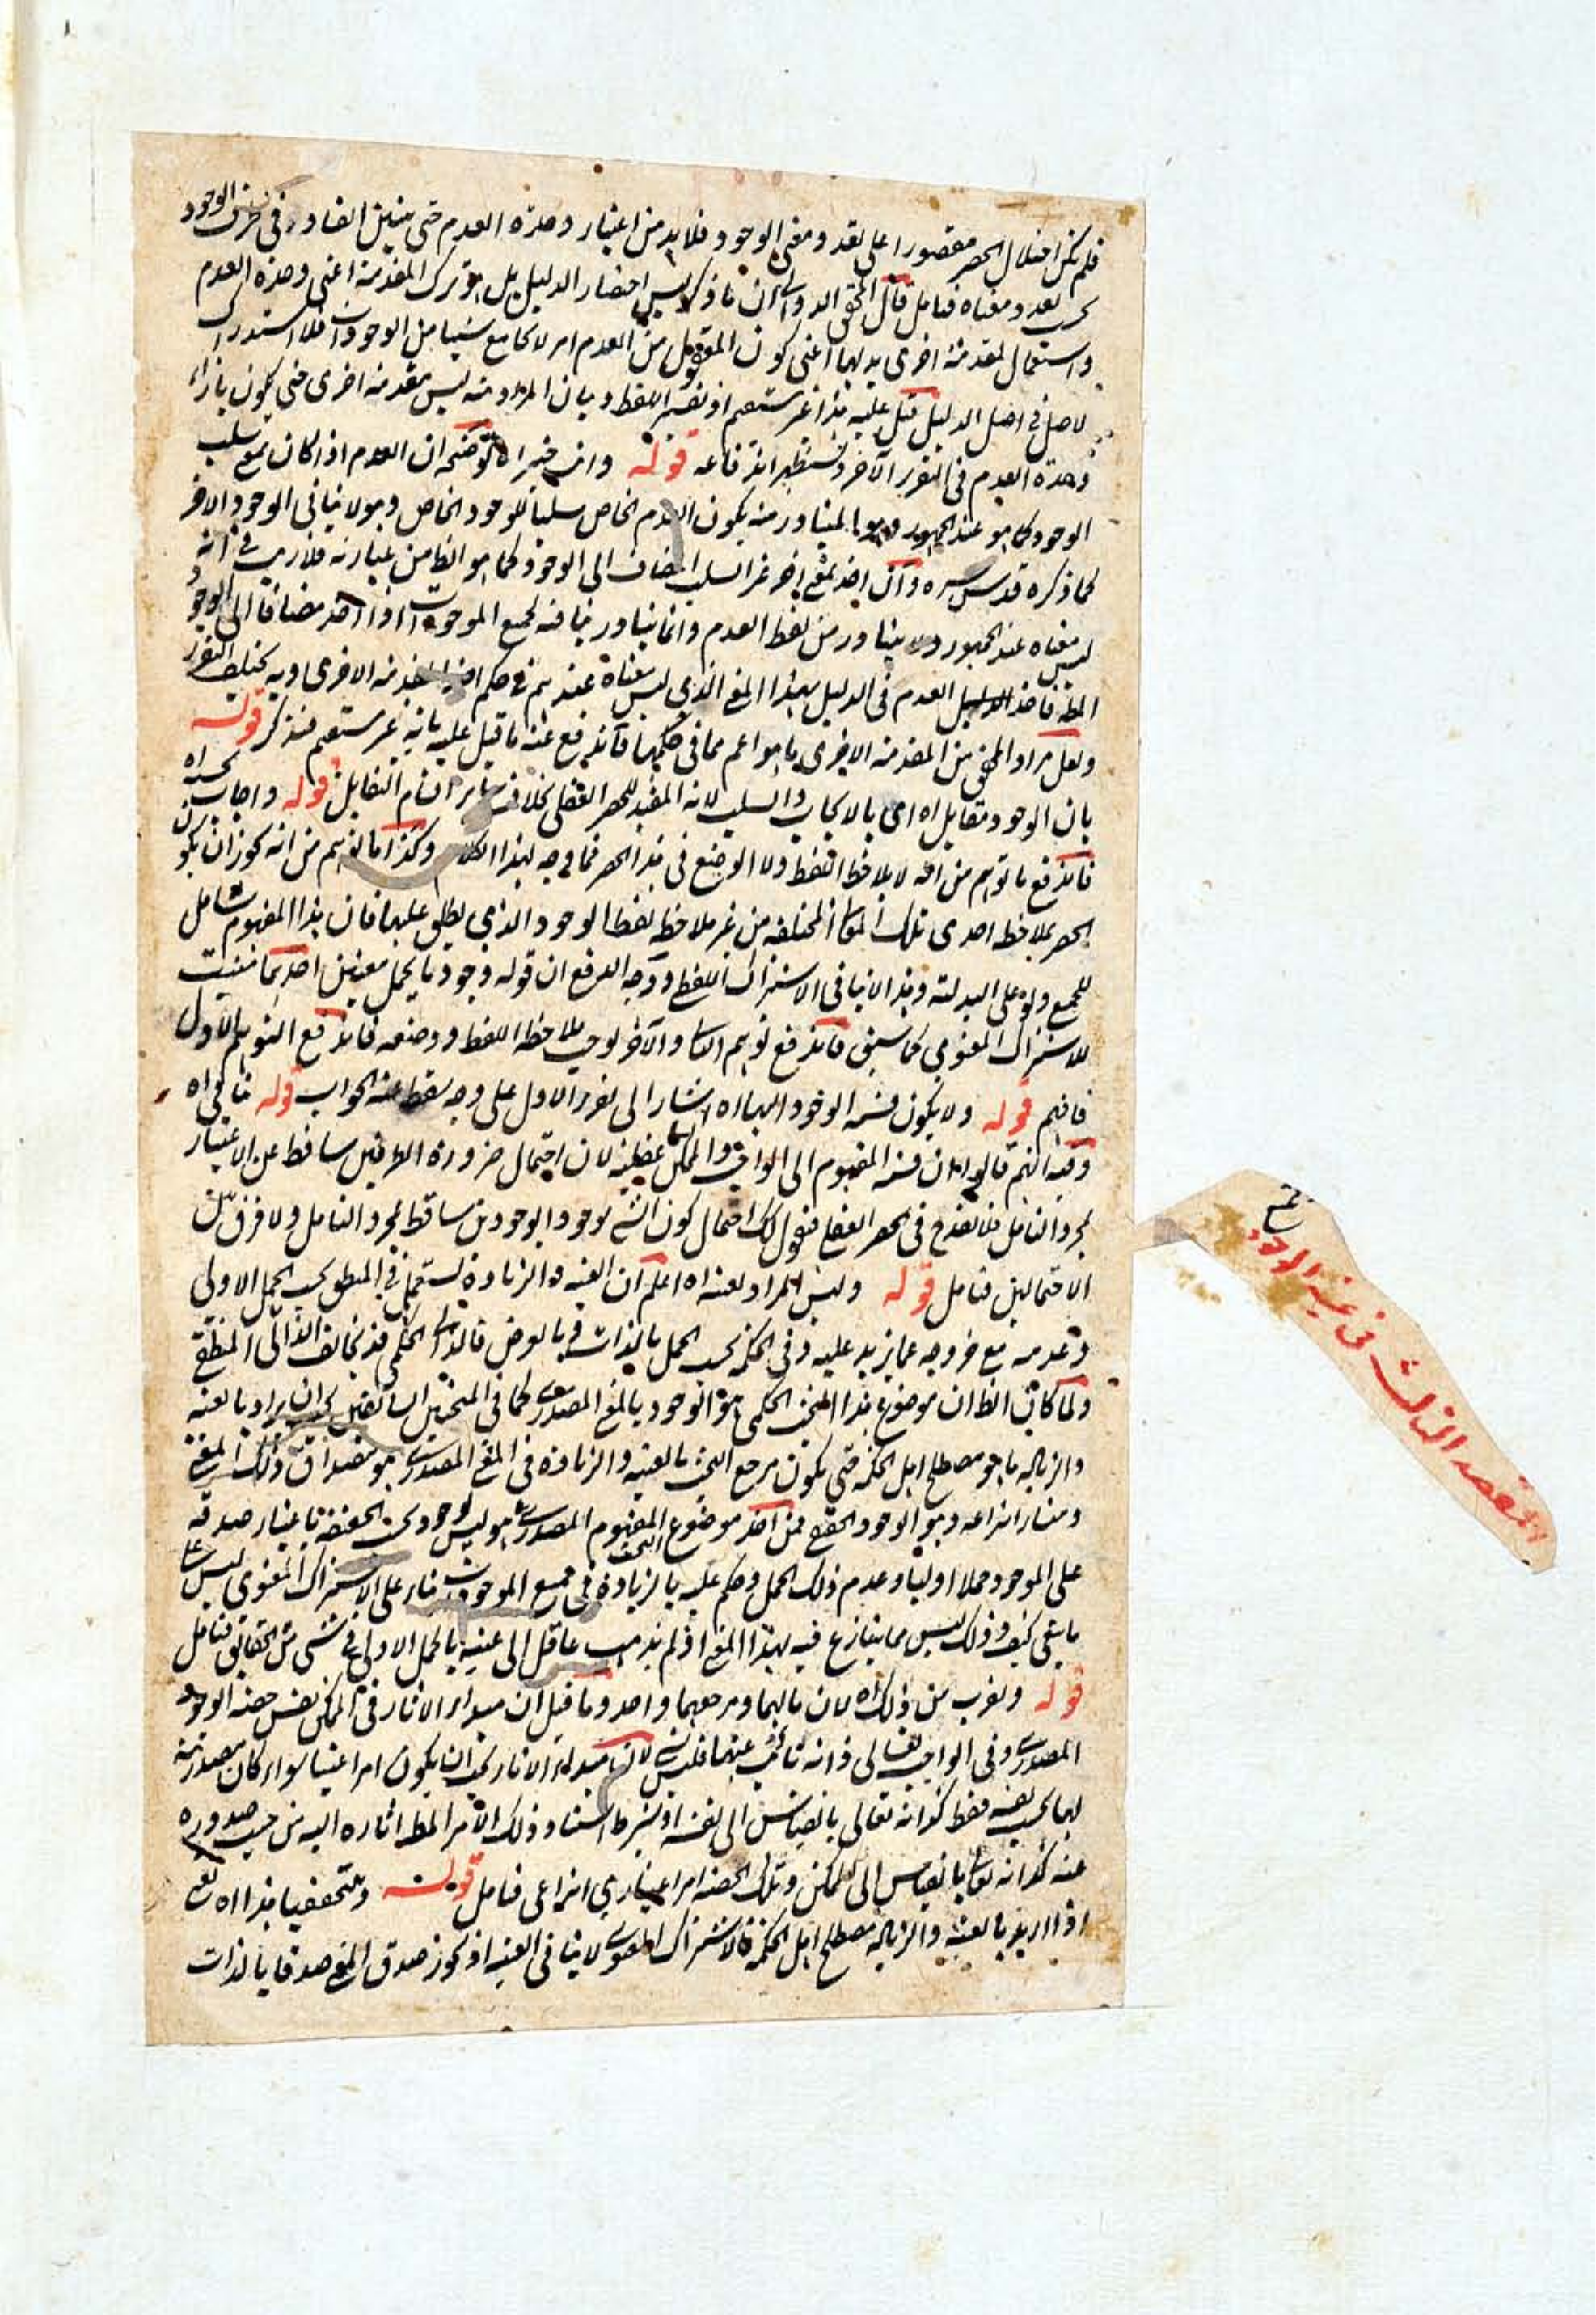 فلم يكن اختلال الحصر مقصورا على تعدد معنى الوجود فلا بد من اعتبار وحدة العدم حتى يتبين الفساد في الوجود
بحسب تعدد معناه فتامل قال المحقق الدواني ان ما ذكر ليس اختصار الدليل بل هو ترك المقدمة اعنى وحدة العدم
واستعمال لمقدمة اخرى بديهية اعنى كون المفهوم من العدم امر لا يجامع شيئا من الوجودات فلا استدراك
لاصل فى اصل الدليل قيل عليه هذا غير مستقيم اذ تفسير اللفظ وبيان المراد منه ليس مقدمة اخرى حتى يكون بازاء
وحدة العدم فى التقرير الآخر وستظهر اندفاعه قوله وانت خبير اه توضيحه ان العدم اذا كان بمعنى سلب
الوجود كما هو عند الجمهور وهو المتبادر منه يكون العدم الخاص سلبا للوجود الخاص وهو لا ينافى الوجود الآخر
كما ذكره قدس سره وان اخذ بمعنى اخر غير السلب المضاف الى الوجود كما هو الظاهر من عبارته فلا ريب فى انه
ليس معناه عند الجمهور ولا يتبادر من لفظ العدم وانما يتبادر منافاته لجميع الموجودات اذا اخذ مضافا الى الوجود
المطلق فاخذ العدم فى الدليل بهذا المعنى الذى ليس معناه عندهم فى حكم اخذ مقدمة اخرى وبه يختلف التقرير
ولعل مراد المحقق من المقدمة الاخرى ما هو اعم مما فى حكمها فاندفع عنه ما قيل عليه بانه غير مستقيم فتذكر قوله
بان الوجود مقابل اه اى بالايجاب والسلب لانه المفيد للحصر العقلى بخلاف سائر اقسام التقابل قوله واجاب عنه اه
فاندفع ما توهم من انه لا يلاحظ اللفظ ولا الوضع فى هذا الحصر فما وجه لهذا الكلام وكذا ما توهم من انه يجوز ان يكون
الحصر بملاحظة احدى تلك المعانى المختلفة من غير ملاحظة لفظ الوجود الذى يطلق عليها فان هذا المفهوم شامل
للجميع ولو على البدلية وهذا لا ينافى الاشتراك اللفظى ووجه الدفع ان قوله وجود ما يحتمل معنيين احدهما مثبت
للاشتراك المعنوى كما سبق فاندفع توهم الثانى والآخر يوجب ملاحظة اللفظ ووضعه فاندفع التوهم الاول
فافهم قوله ولا يكون قسمة الوجود اليها اه اشار الى تقرير الاول على وجه سقط عنه الجواب قوله فانقى اه
وفيه انهم قالوا ان قسمة المفهوم الى الواجب والممكن عقلية لان احتمال ضرورة الطرفين ساقط عن الاعتبار
بمجرد التامل فلا يقدح فى الحصر العقلى فنقول كذلك احتمال كون الشئ موجودا بوجودين ساقط بمجرد التامل ولا فرق بين
الاحتمالين فتامل قوله وليس المراد بعينه اه اعلم ان العينية والزيادة تستعمل فى المنطق بحسب الحمل الاولى
وعدمه مع خروجه عما يزيد عليه وفى الحكمة بحسب الحمل بالذات وبالعرض فالذاتى الحكمى قد يخالف الذاتى المنطقى
ولما كان الظاهر ان موضوع هذا المبحث الحكمى هو الوجود بالمعنى المصدرى كما فى المبحثين السابقين يجب ان يراد بالعينية
والزيادة ما هو مصطلح اهل الحكمة حتى يكون مرجع البحث بالعينية والزيادة فى المعنى المصدرى هو مصداق ذلك المعنى
ومنشاء انتزاعه وهو الوجود الحقيقى فمن اخذ موضوع البحث المفهوم المصدرى هو ليس وجود بحسب الحقيقة باعتبار صدقه
على الموجود حملا اوليا وعدم ذلك الحمل وحكم عليه بالزيادة فى جميع الموجودات بناء على الاشتراك المعنوى ليس على
ما ينبغى كيف وذلك ليس مما ينازع فيه بهذا المعنى اذ لم يذهب عاقل الى عينيته بالحمل الاولى فى شئ من الحقائق فتامل
قوله ويقرب من ذلك اه لان مآلهما ومرجعهما واحد وما قيل ان مبداء الاثار فى الممكن نفس حصة الوجود
المصدرى وفى الواجب تعالى ذاته نائب عنها فليس لان مبداء الاثار يجب ان يكون امرا عينيا سواء كان مصدريته
لها بحسب نفسه فقط كذاته تعالى بالقياس الى نفسه او بشرط استناد ذلك الامر المطلق اثاره اليه من حيث صدوره
عنه كذاته تعالى بالقياس الى الممكن وتلك الحصة امر اعتبارى انتزاعى فتامل قوله وبتحقيقنا هذا اه يعنى
اذا اريد بالعينية والزيادة مصطلح اهل الحكمة فالاشتراك المعنوى لا ينافى العينية اذ يجوز صدق المعنى صدقا بالذات
المقصد الثالث فى عينية الوجود